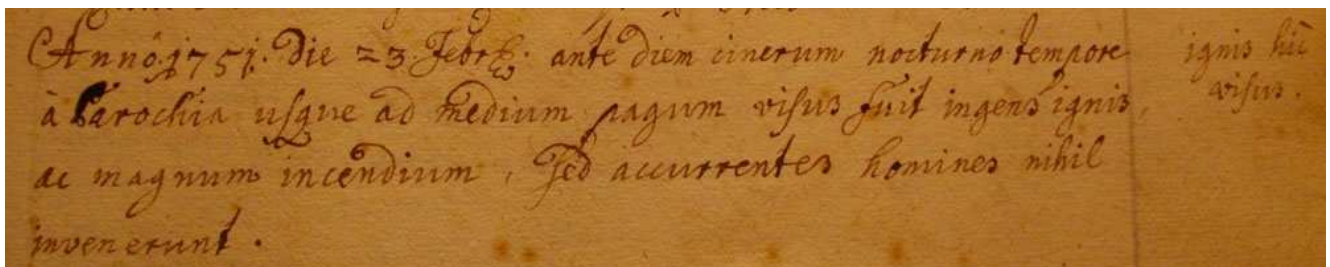 Anno. 1751. Die 23. Febr. ante diem cinerum nocturno tempore
à Parochia usque ad medium pagum visus fuit ingens ignis,
ac magnum incendium, sed accurrentes homines nihil
invenerunt.
ignis hic
visus.